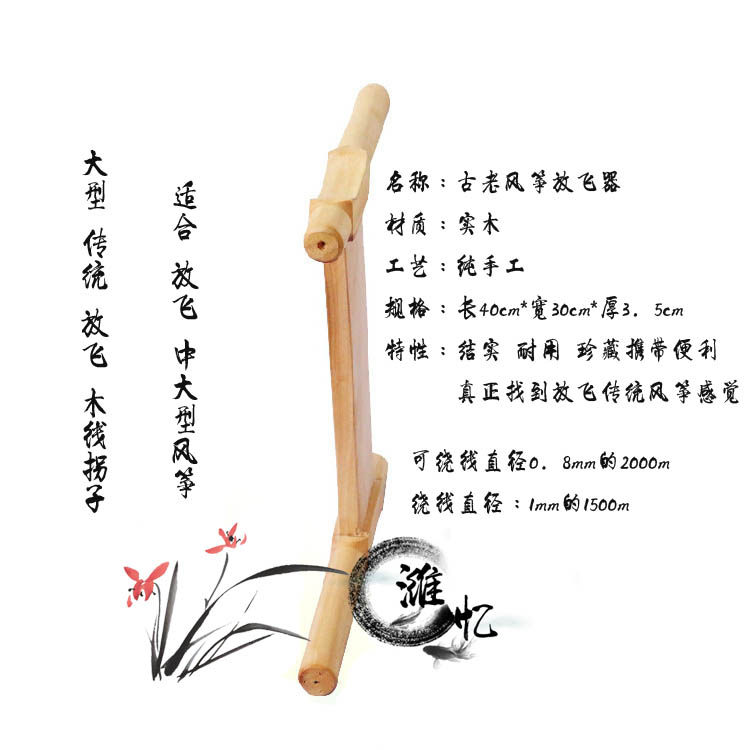 大型 传统 放飞 木线拐子
适合 放飞 中大型风筝
名称：古老风筝放飞器
材质：实木
工艺：纯手工
规格：长40cm*宽30cm*厚3．5cm
特性：结实 耐用 珍藏携带便利
真正找到放飞传统风筝感觉
可绕线直径0．8mm的2000m
绕线直径：1mm的1500m
潍忆